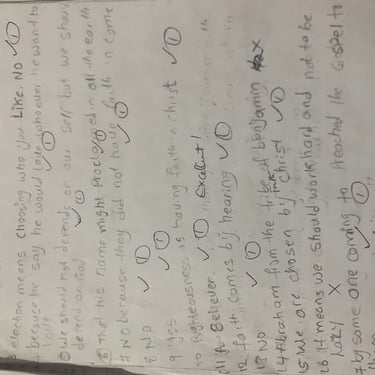 election means choosing who you Like. NO ✓ ①
4 because he say he would love who ever he want to
love ✓ ①
⑤ We should not depends on our self but we should
defend or God ✓ ①
⑥ That his name might proclaimed in all the earth ✓ ①
7 NO because they did not have faith in come ✓ ①
8 NO ✓ ①
9 yes ✓ ①
10 Righteousness is having faith in christ ✓ ①
(11 for Believer. ✓ ① Excellent!
12 faith comes by hearing ✓ ①
13 NO ✓ ①
(14 Abraham from the tribe of benjaming X
15 We are chosen by christ ✓ ①
16 it means we should work hard and not to be
Lazy X
17 by some one coming to preached the Gospel to
them ①